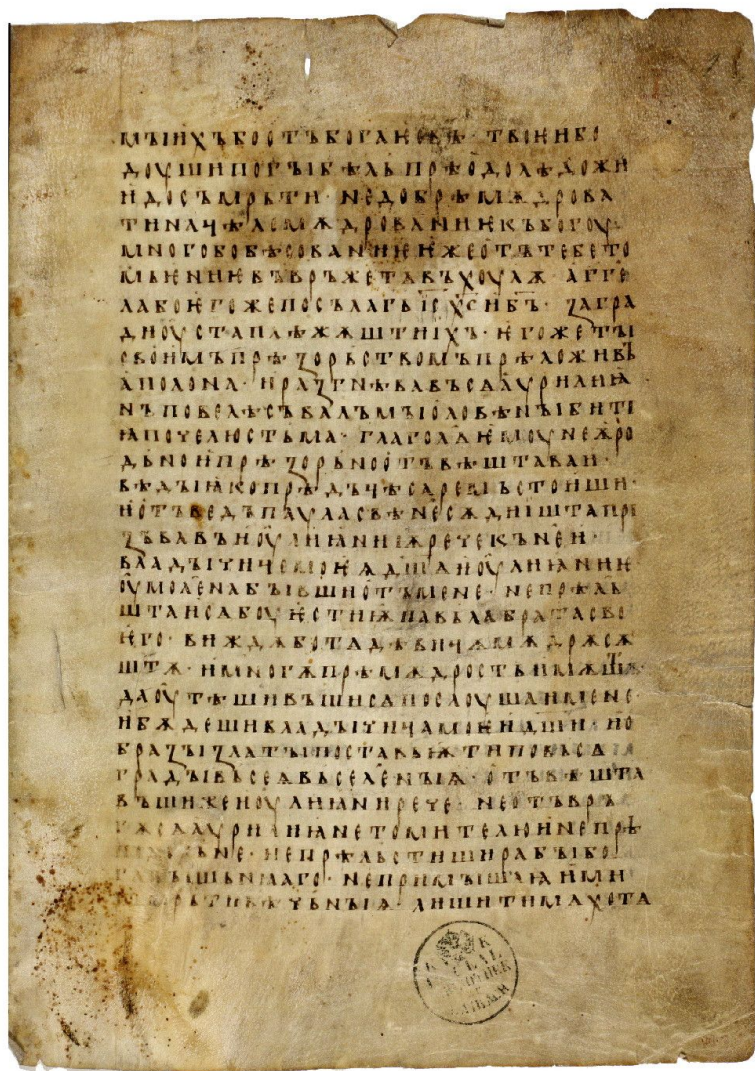 мꙑихъ бо отъ бога неве · твои нбо
доуши погꙑбѣль прѣодолѣ дожи
и до съмрьти · не добрѣ мѫдрова
ти начѣлѡ мѫдрованиѥ къ богоу
много бо бѣсованиѥ ѥже отъ тебе то
мьѥниѥ въвръжетъ въ хоулѫ · аг꙼ге
ла бо ѥгоже посъла г҃ь і҃с х҃с н҃бъ · заградноу
ста плѣжѫштиихъ · ѥгоже тꙑ
своимъ прѣзорьствомъ прѣложивъ
аполона · и разгнѣвавъ сѧ аурилиꙗ
нъ повелѣ съвалъмь оловѣнꙑ бити
ѭ по челюстьма · глагол҄ѧ ѥмоу не ѫро
дьно и прѣзорьно отъвѣштаваи ·
вѣдꙑ ꙗко прѣдъ цѣсаремь стоиши ·
и отъведъ паула свѣнѥ сѫдишта при
зъвавъ ноулиꙗниѭ рече къ нѥи ·
владꙑчице моꙗ д҃ша иоулиꙗниѥ
оумол҄ена бꙑвъши отъ мене · не прѣль
штаи сѧ боуѥстиѭ павьла брата сво
ѥго · виждѫ бо тѧ дѣвицѫ мѫдрѫ сѫ
штѫ · и многѫ прѣмѫдрость имѫштѫ
да оутѣшивъши сѧ послоушаи мене
и бѫдеши владꙑчица моꙗ и д҃ши · и о
бразꙑ златꙑ поставьѭ ти по вьсѧ
градꙑ вьсеѧ въселѥнꙑѧ · отъвѣшта
въши же иоулиꙗни рече · не отъвръ
жеши аурилиꙗне томител҄ю и не прѣ
не прѣльстиши рабꙑ бо
вꙑшьнꙗго · не примꙑшлꙗи ми
съмрьти вѣчьнꙑѧ · лишити мѧ хотѧ